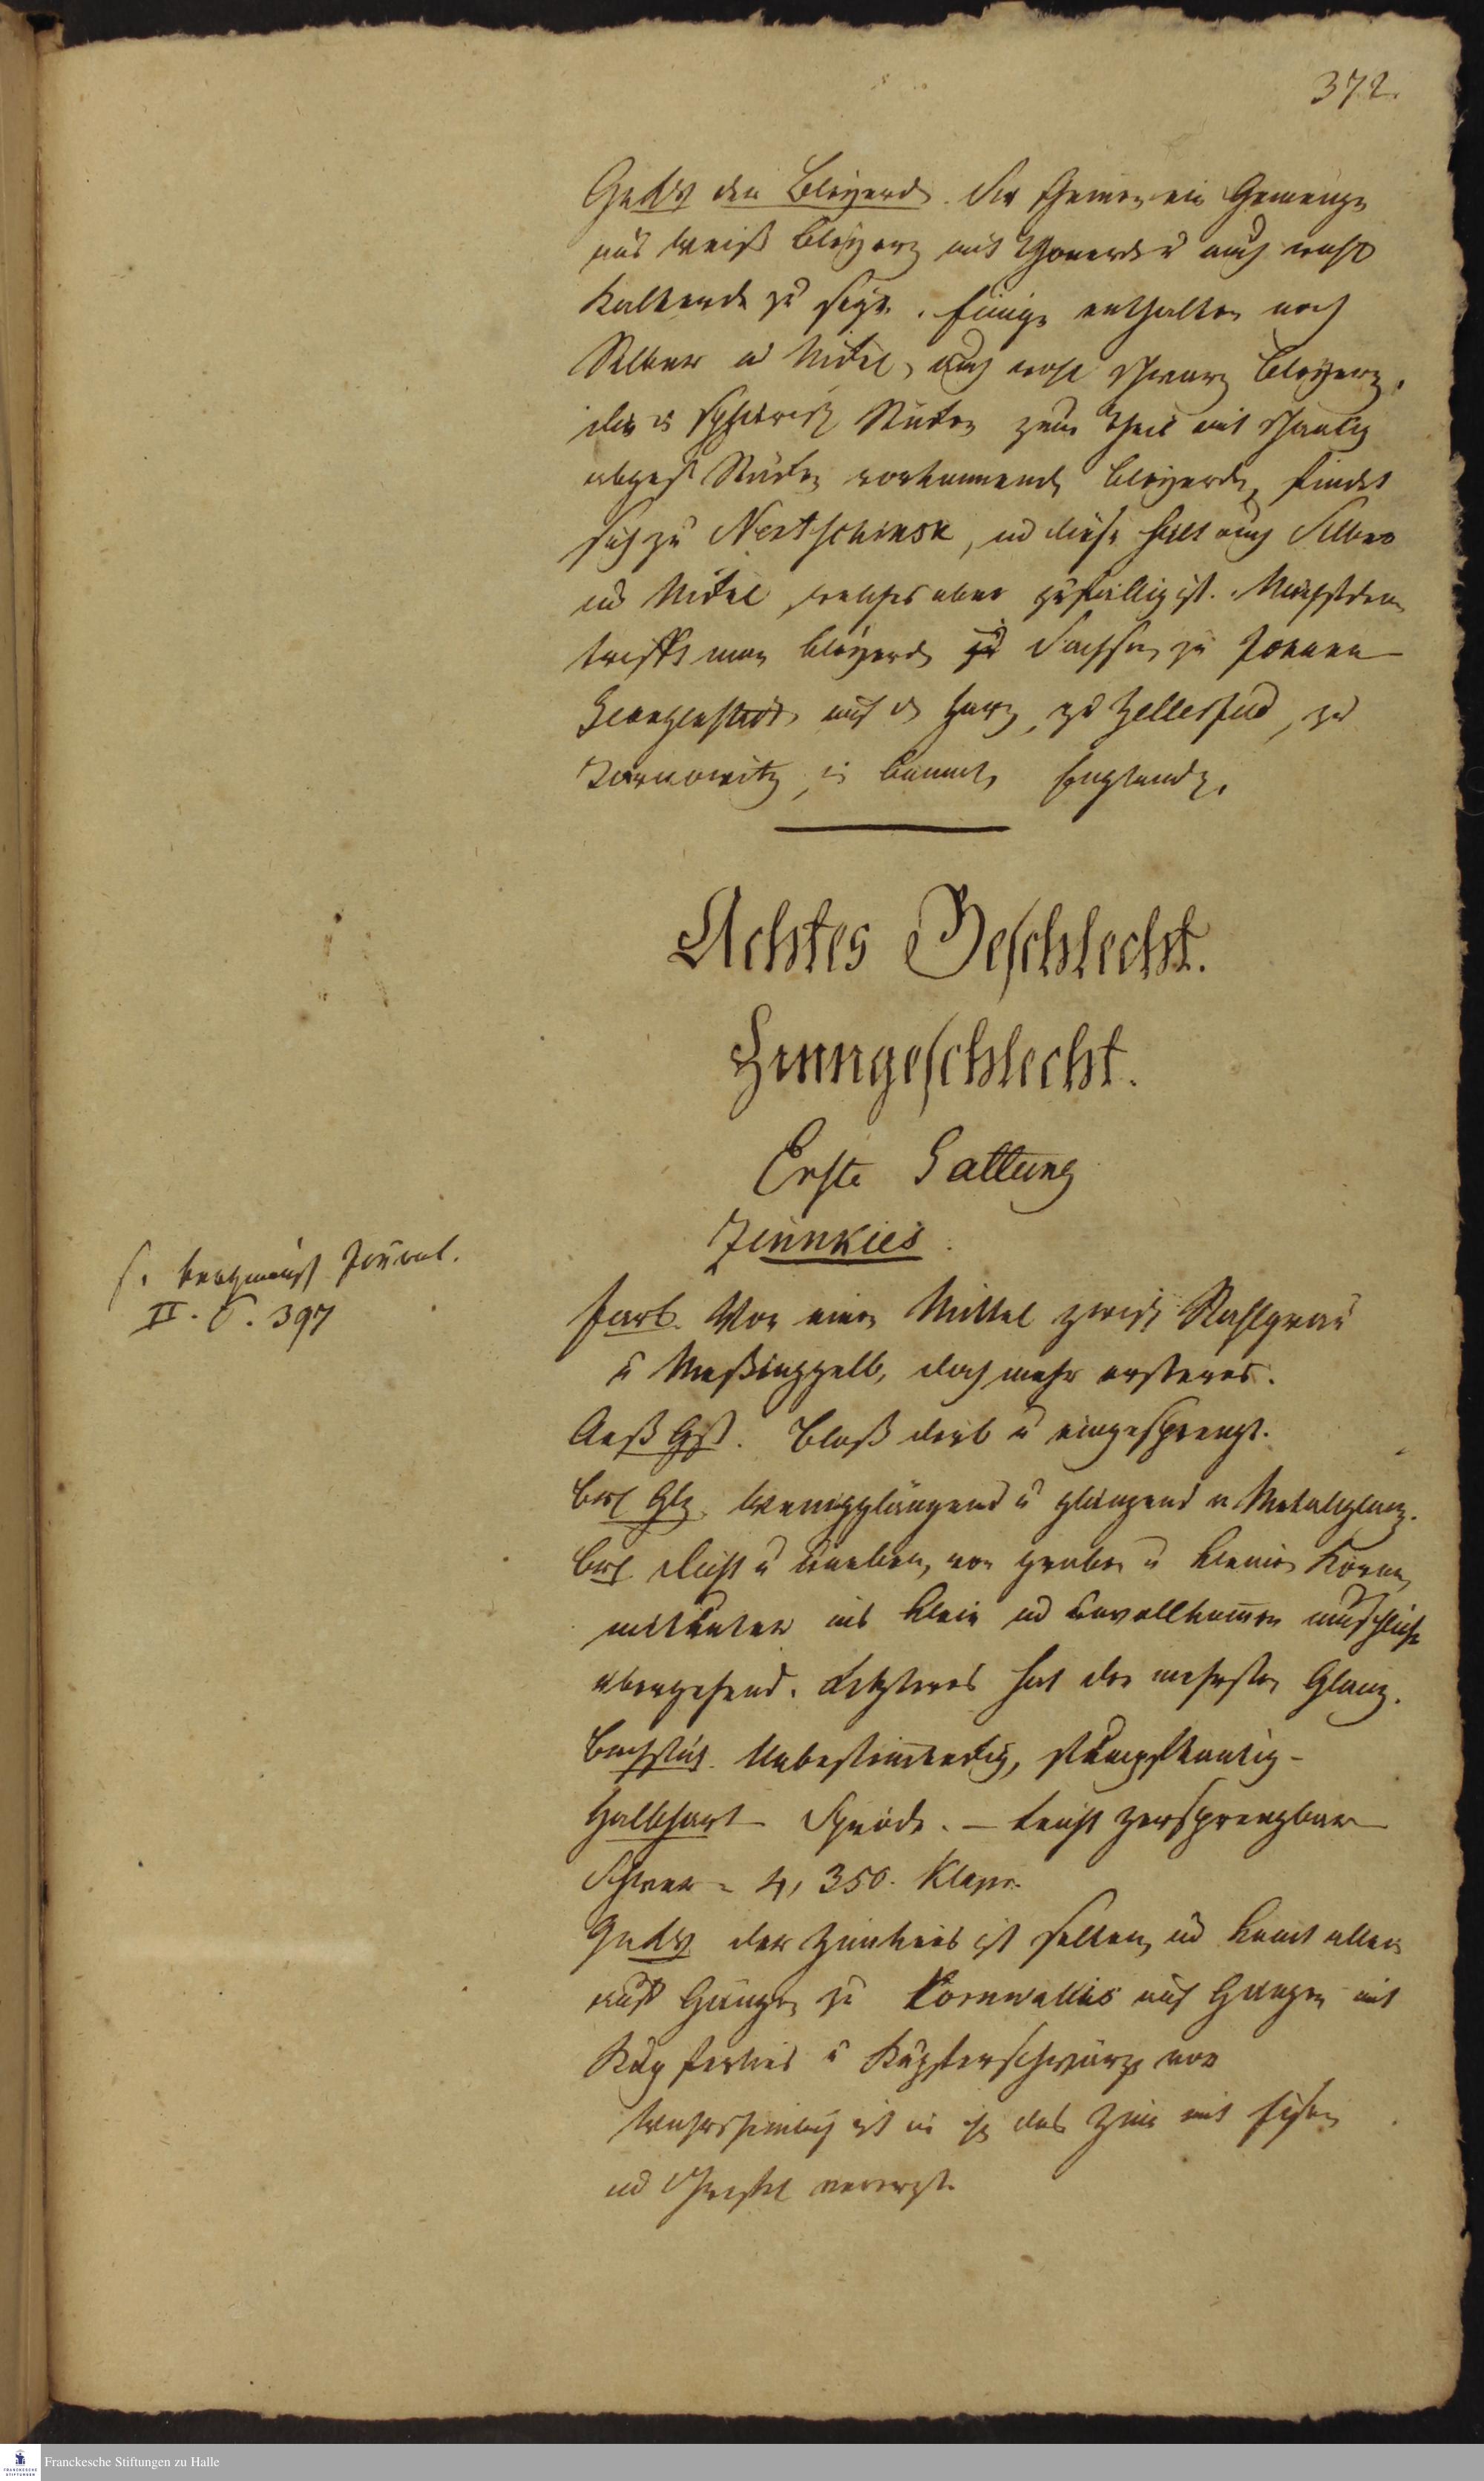 372.
der Bleyerde. Sie scheinen ein Gemenge
aus weiß Bleyerz mit Thonerde u auch wohl
Kalkerde zu seyn. Einige enthalten noch
Silber u Nickel, auch wohl schwarz Bleyerz.
die in Stücken zum Theil mit
Stücken vorkommende Bleyerde, findet
sich zu Nertschinsk, und diese hält auch Silber
und Nickel, welches aber zufällig ist. Nächstdem
trifft man Bleyerde zu Sachsen zu Johann
Georgenstadt, auf d Harz, zu Zellerfeld, zu
Tarnowitz, in England.
Achtes Geschlecht.
Zinngeschlecht.
Erste Gattung
Zinnkies.
s. bergmänsch Journal.
II. S. 397
Farb. Von einem Mittel zwisch Stahlgrau
u Meßinggelb, doch mehr ersteres.
Aeß Gst. Bloß derb u eingesprengt.
Brch Glz. Wenigglänzend u glänzend v Metallglanz.
Brch. Dicht u uneben, von groben u kleinen Korne,
mitunter ins klein und unvollkommen muschliche
übergehend. Letzteres hat den mehrsten Glanz.
Bruchstück. Unbestimmteckig, stumpfkantig –
Halbhart – Spröde. – Leicht zersprengbar –
Schwer = 4, 350. Klapr.
der Zinnkies ist selten, und kommt allein
auf Gängen zu Cornwallis auf Gängen mit
Kupferkies u Kupferschwärze vor
Wahrscheinlich ist in ihm das Zinn mit Eisen
und Schwefel vererzt.
Franckesche Stiftungen zu Halle